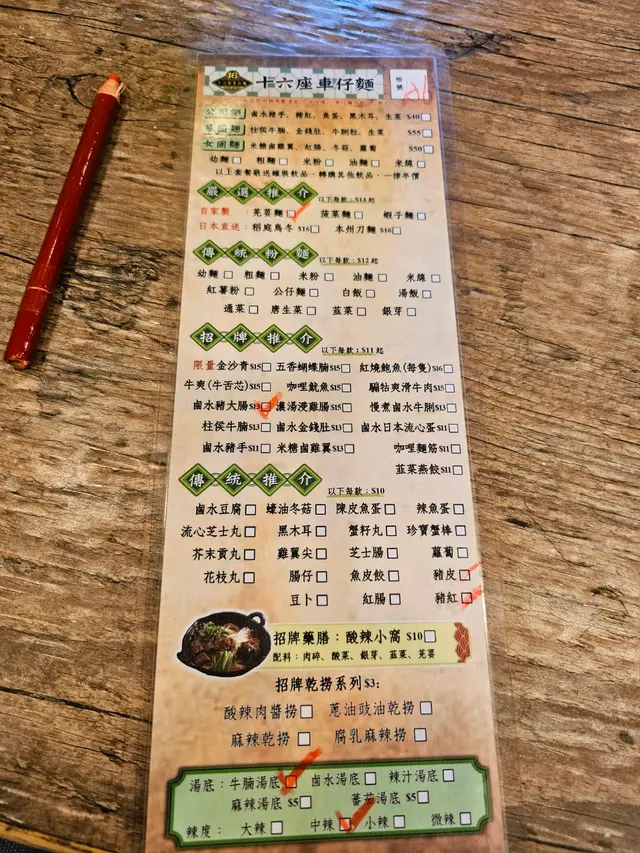 16
十六座車仔麵
枱號 26
公司麵 鹵水豬手、豬紅、魚蛋、黑木耳、生菜 $40□
柱侯牛腩、金錢肚、牛脷粒、生菜 $55□
女團麵 米糖鹵雞翼、紅腸、冬菇、蘿蔔 $50□
幼麵□ 粗麵□ 米粉□ 油麵□ 米線□
以上套餐歡送罐裝飲品,轉購其他飲品,一律半價
嚴選推介 以下每款:$14起
自家製:芫荽麵□ 菠菜麵□ 蝦子麵□
日本直送:稻庭烏冬 $16□ 本州刀麵 $16□
傳統粉麵 以下每款:$12起
幼麵□ 粗麵□ 米粉□ 油麵□ 米線□
紅薯粉□ 公仔麵□ 白飯□ 湯飯□
通菜□ 唐生菜□ 韮菜□ 銀芽□
招牌推介 以下每款:$11起
限量金沙青$15□ 五香蝴蝶腩$15□ 紅燒鮑魚(每隻)$16□
牛爽(牛舌芯)$15□ 咖哩魷魚$15□ 騸牯爽滑牛肉$15□
鹵水豬大腸$13□ 濃湯浸雞腎$15□ 慢煮鹵水牛脷$13□
柱侯牛腩$13□ 鹵水金錢肚$13□ 鹵水日本流心蛋$11□
鹵水豬手$11□ 米糖鹵雞翼$13□ 咖哩麵筋$11□
韮菜燕餃$11□
傳統推介 以下每款:$10
鹵水豆腐□ 蠔油冬菇□ 陳皮魚蛋□ 辣魚蛋□
流心芝士丸□ 黑木耳□ 蟹籽丸□ 珍寶蟹棒□
芥末貢丸□ 雞翼尖□ 芝士腸□ 蘿蔔□
花枝丸□ 腸仔□ 魚皮餃□ 豬皮□
豆卜□ 紅腸□ 豬紅□
招牌藥膳:酸辣小窩 $10□
配料:肉碎、酸菜、銀芽、韮菜、芫荽
招牌乾撈系列$3:
酸辣肉醬撈□ 蔥油豉油乾撈□
麻辣乾撈□ 腐乳麻辣撈□
湯底:牛腩湯底□ 鹵水湯底□ 辣汁湯底□
麻辣湯底 $5□ 蕃茄湯底 $5□
辣度: 大辣□ 中辣□ 小辣□ 微辣□